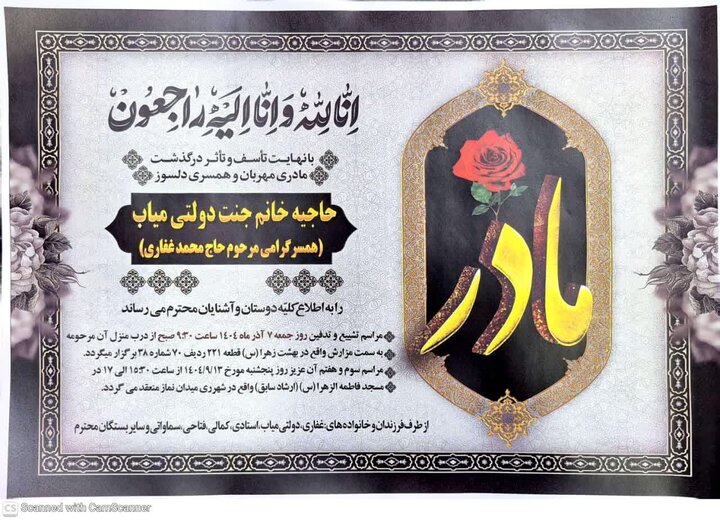 انا لله و انا الیه راجعون
با نهایت تأسف و تأثر درگذشت
مادری مهربان و همسری دلسوز
حاجیه خانم جنت دولتی میاب
(همسر گرامی مرحوم حاج محمد غفاری)
را به اطلاع کلیه دوستان و آشنایان محترم می رساند
مراسم تشییع و تدفین روز جمعه ۷ آذر ماه ۱۴۰۴ ساعت ۹:۳۰ صبح از درب منزل آن مرحومه
به سمت مزارش واقع در بهشت زهرا (س) قطعه ۲۲۱ ردیف ۷۰ شماره ۳۸ برگزار میگردد.
مراسم سوم و هفتم آن عزیز روز پنجشنبه مورخ ۱۴۰۴/۹/۱۳ از ساعت ۱۵:۳۰ الی ۱۷ در
مسجد فاطمه الزهرا (س) (ارشاد سابق) واقع در شهرری میدان نماز منعقد می گردد.
از طرف فرزندان و خانواده های: غفاری، دولتی میاب، استادی، کمالی، فتاحی، سماواتی و سایر بستگان محترم
مادر
CS Scanned with CamScanner